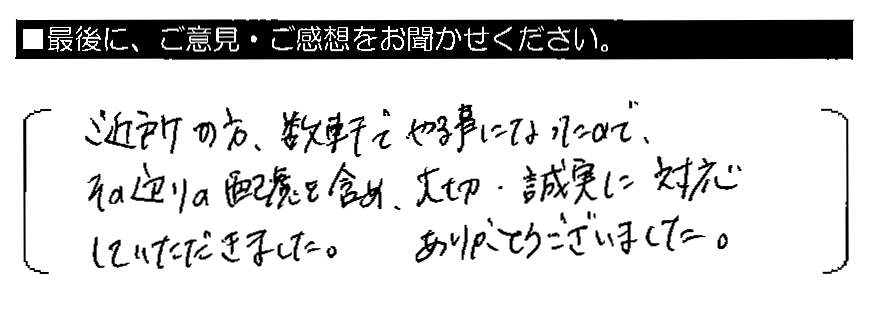 ■最後に、ご意見・ご感想をお聞かせください。
ご近所の方、数軒でやる事になったので、
その辺りの配慮を含め、大切・誠実に対応
していただきました。 ありがとうございました。